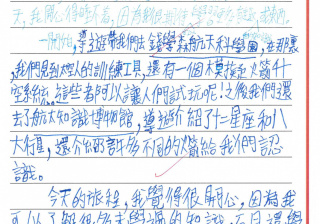 天,我
因為
導遊帶我們去錢學森航天科學園,在那裏
,我們見到太空人的訓練工具,還有一個模擬火箭升
空系統,這些者阿以讓人們試玩呢!之後我們還
去了航太知識博物館,導遊介紹了十二星座和八
大行星,還介紹許多不同的火箭給我們認
識。
今天的旅程,我覺得很開心,因為我
可以了解很多未學過的知識,而且還學